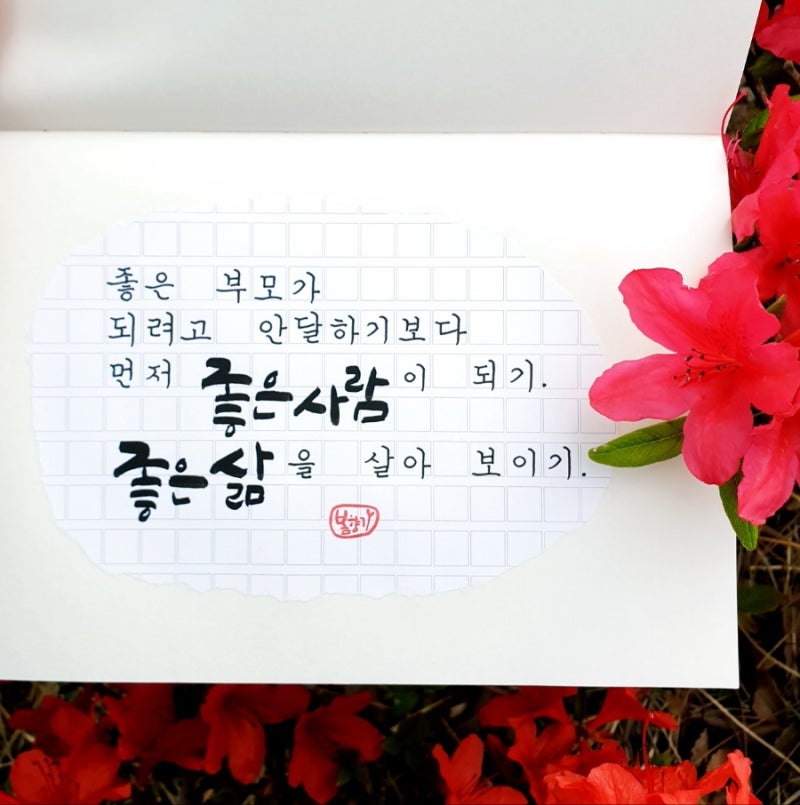 좋은 부모가
되려고 안달하기보다
먼저 좋은사람이 되기.
좋은삶을 살아 보이기.
봄향기